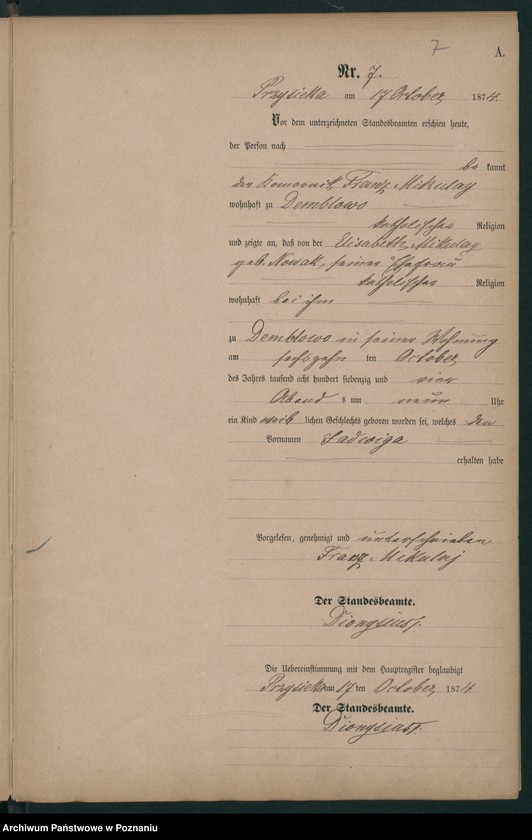 7
A.
Nr. 7.
Przysieka am 17 October 1874.
Vor dem unterzeichneten Standesbeamten erschien heute,
der Person nach
be kannt
der Komornik Franz Mikulay
wohnhaft zu Demblowo
katholischer Religion
und zeigte an, daß von der Elisabeth Mikulay
geb. Nowak, seiner Ehefrau
katholischer Religion
wohnhaft bei ihm
zu Demblowo in seiner Wohnung
am sechszehn ten October
des Jahres tausend acht hundert siebenzig und vier
Abend s um neun Uhr
ein Kind weib lichen Geschlechts geboren worden sei, welches den
Vornamen Jadwiga
erhalten habe
Vorgelesen, genehmigt und unterschrieben
Franz Mikulaj
Der Standesbeamte.
Dionysius
Die Uebereinstimmung mit dem Hauptregister beglaubigt
Przysieka am 17 ten October 1874
Der Standesbeamte.
Dionysius
Archiwum Państwowe w Poznaniu